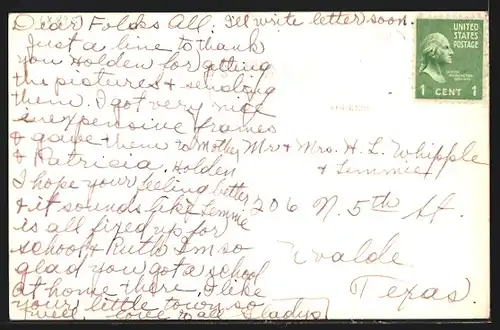 Dear Folks All. I'll write letter soon.
Just a line to thank
you Holden for getting
the pictures & sending
them. I got very nice
inexpensive frames
& gave them to Mother
& Patricia. Holden
I hope your feeling better
& it sounds like Lemmie
is all fixed up for
school & Ruth I'm so
glad you got a school
at home there, I like
your little town so
well. Love to all Gladys
UNITED
STATES
POSTAGE
1 CENT 1
Mr & Mrs. H. L. Whipple
& Lemmie
206 N. 5th St.
Uvalde
Texas.